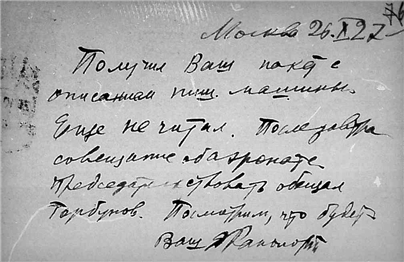 Москва 26.XI 27
Получил Ваш пакет с
описанием пиш. машины.
Еще не читал. Послезавтра
совещание
председательствовать обещал
Горбунов. Посмотрим, что будет
Ваш